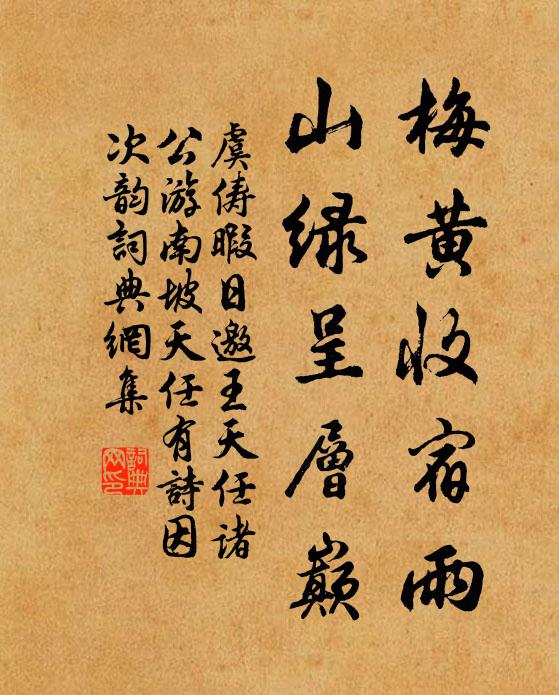 梅黄收宿雨
山绿呈層巔
虞儔暇日邀王天任諸
公游南坡天任有詩因
次韵詞典網集
詞典網印